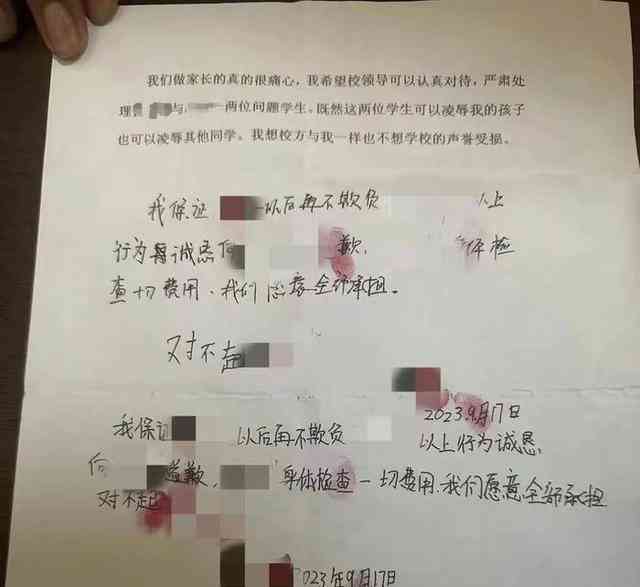 我们做家长的真的很痛心，我希望校领导可以认真对待，严肃处
理 与 两位问题学生。既然这两位学生可以凌辱我的孩子
也可以凌辱其他同学。我想校方与我一样也不想学校的声誉受损。
我保证 以后再不欺负 以上
行为 诚恳向 歉, 体检
查一切费用、我们愿意全部承担。
对不起
2023.9月17日
我保证 以后再不欺负 以上行为诚恳
向 道歉, 身体检查一切费用.我们愿意全部承担
对不起
2023年9月17日